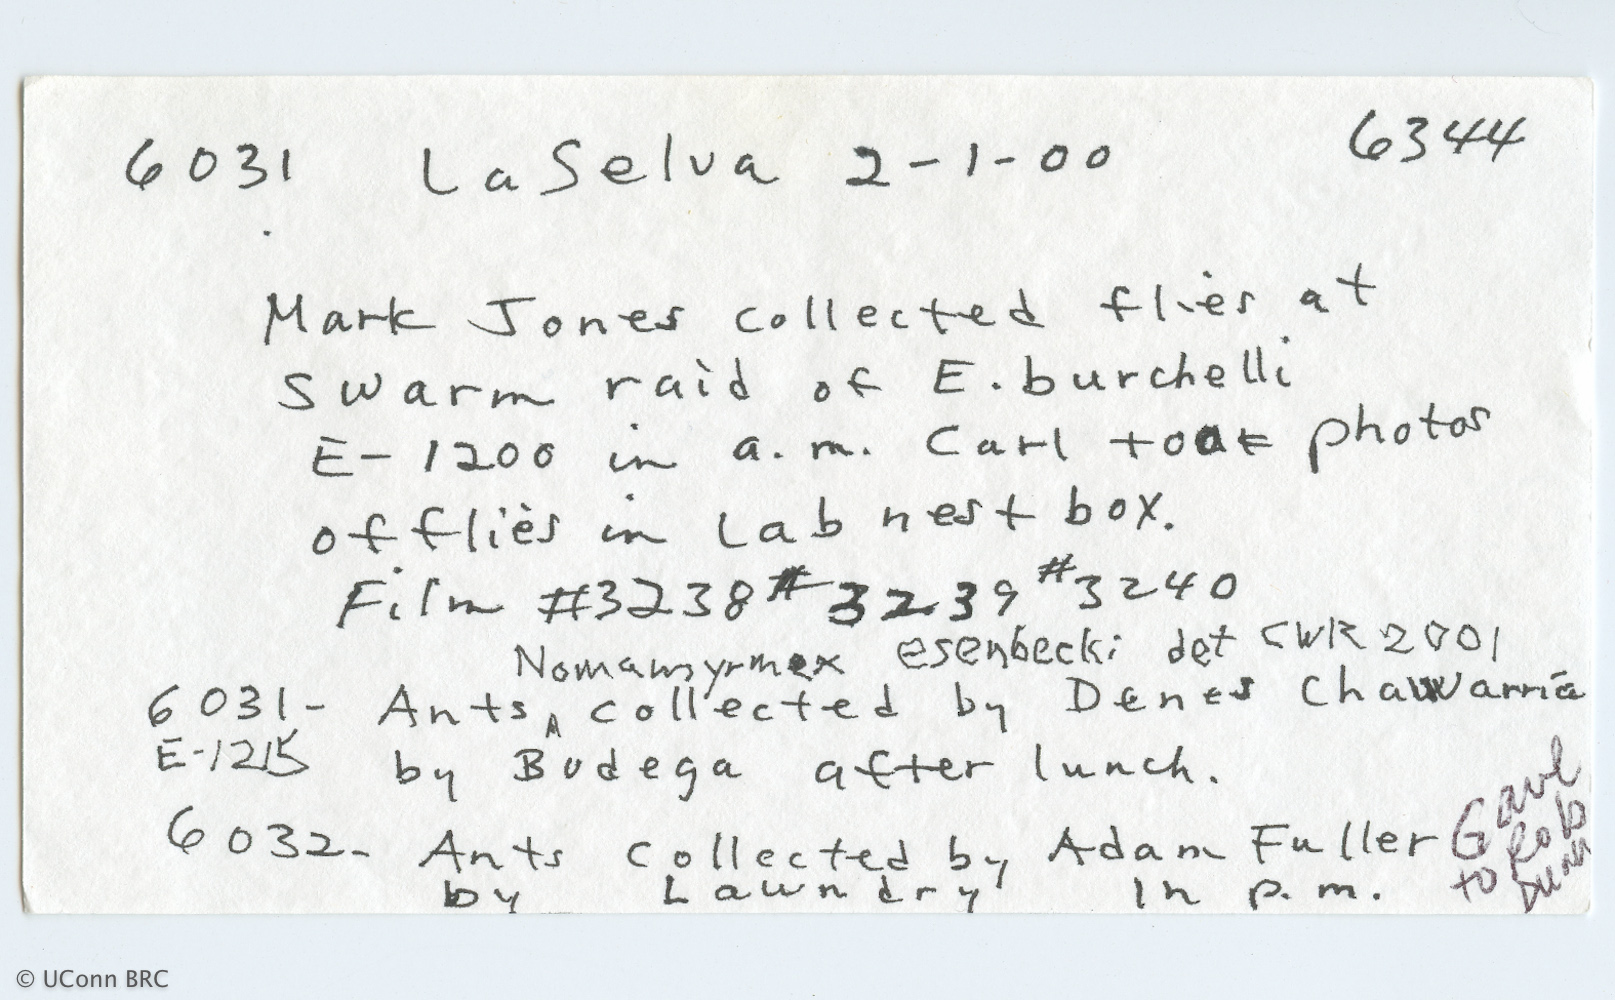 6031 La Selva 2-1-00 6344
Mark Jones collected flies at
swarm raid of E. burchelli
E-1200 in a.m. Carl took photos
of flies in Lab nest box.
Film #3238 #3239 #3240
Nomamyrmex esenbecki det CWR 2001
6031- Ants ^ collected by Denes Chavvarria
E-1215 by Bodega after lunch.
6032- Ants collected by Adam Fuller
by Lawndry in p.m.
Gave
to Rob
Dunn
© UConn BRC